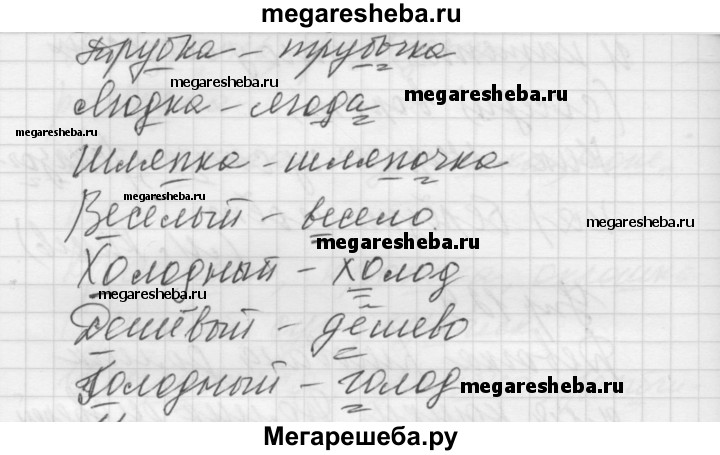 megaresheba.ru
Трубка – трубочка
megaresheba.ru
megaresheba.ru
Людка – люда
megaresheba.ru
Шляпка – шляпочка
megaresheba.ru
Весёлый – весело
megaresheba.ru
megaresheba.ru
Холодный – холод
megaresheba.ru
Дешёвый – дёшево
Голодный – голод
megaresheba.ru
Мегарешеба.ру